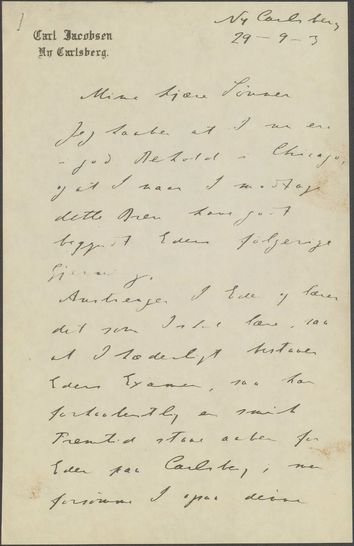 Carl Jacobsen
Ny Carlsberg.
Ny Carlsberg
29-9-3
Mine kjære Sønner
Jeg haaber at I nu er
i god Behold i Chicago,
og at I naar I modtage
dette Brev have godt
begyndt Eders følgerige
Gjerning.
Anstrenger I Eder og lærer
det som I skal lære, saa
at I hæderligt bestaaer
Eders Examen, saa har
forhaabentlig en smuk
Fremtid staae aaben for
Eder paa Carlsberg,
forsømme I denne